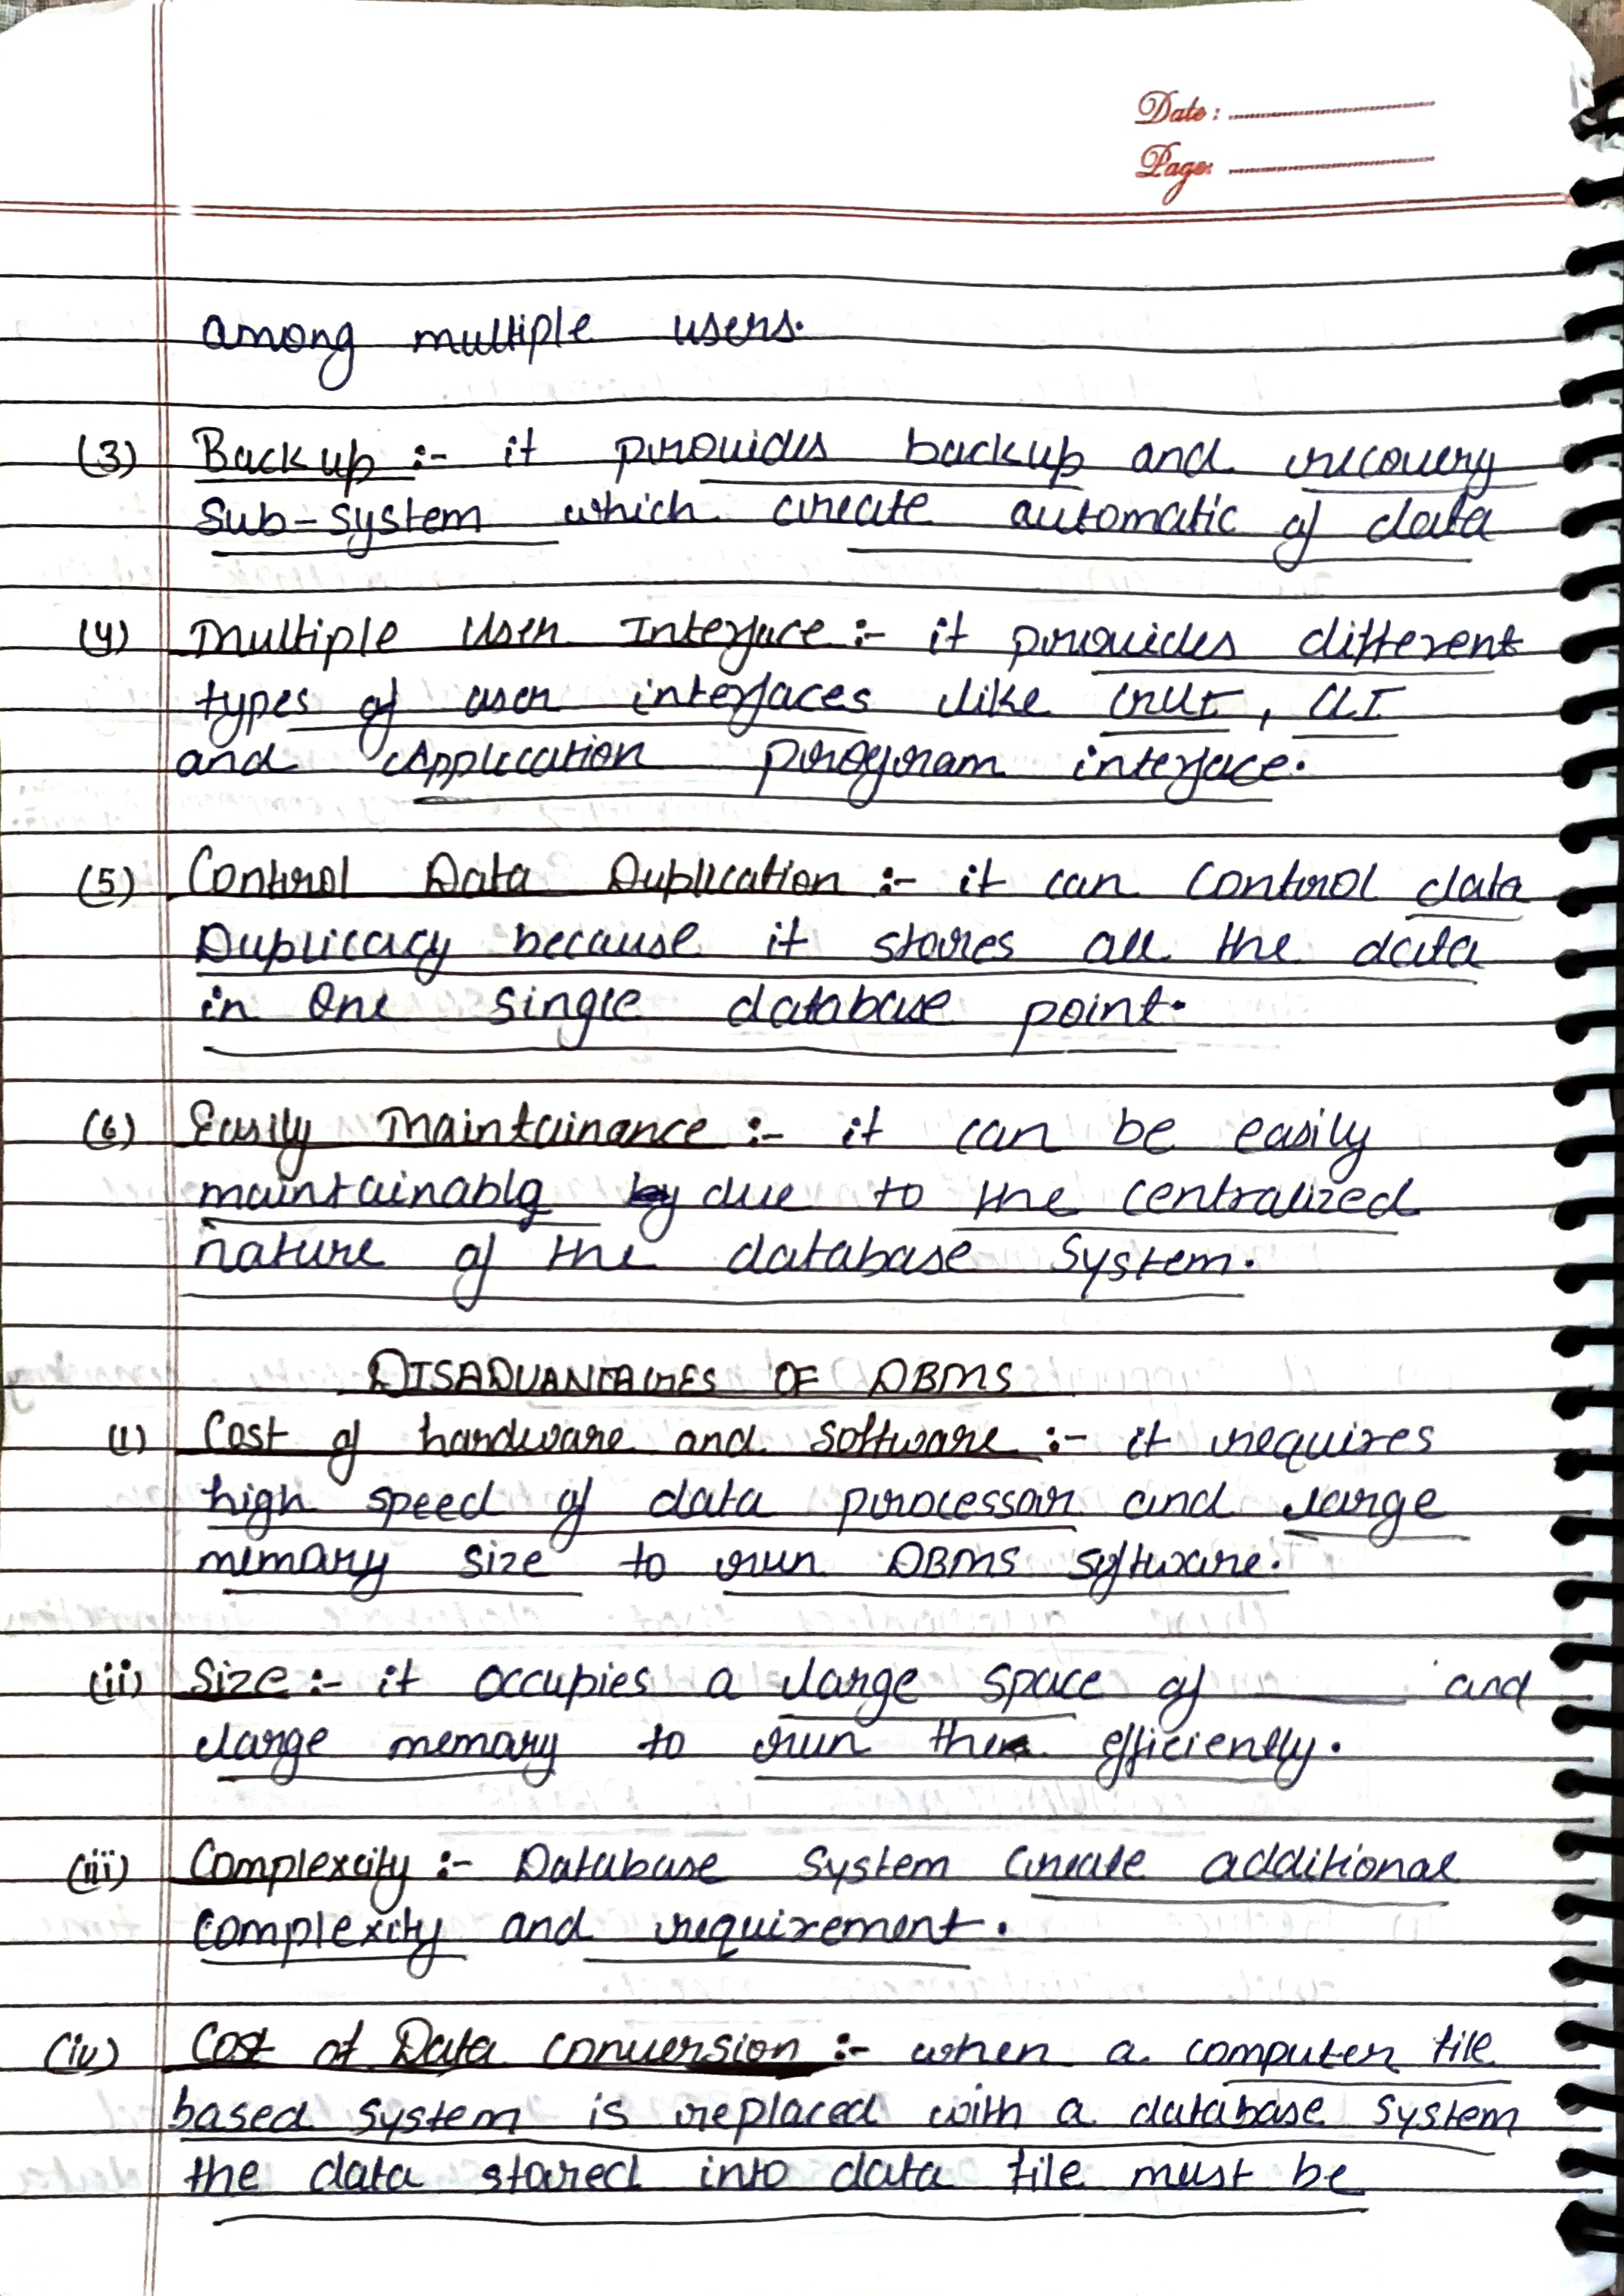 Date :
Page:
among multiple users.
(3) Backup :- it provides backup and recovery
Sub-system which create automatic of data
(4) Multiple User Interface :- it provides different
types of user interfaces like GUI, CLI
and Application program interface.
(5) Control Data Duplication :- it can control data
Duplicacy because it stores all the data
in one single database point.
(6) Easily Maintainance :- it can be easily
maintainably due to the centralized
nature of the database System.
DISADVANTAGES OF DBMS
(i) Cost of hardware and Software :- it requires
high speed of data processor and large
memory size to run DBMS software.
(ii) Size :- it occupies a large space of ______ and
large memory to run efficiently.
(iii) Complexcity :- Database System create additional
complexcity and requirement.
(iv) Cost of Data conversion :- when a computer file
based system is replaced with a database system
the data stored into data file must be